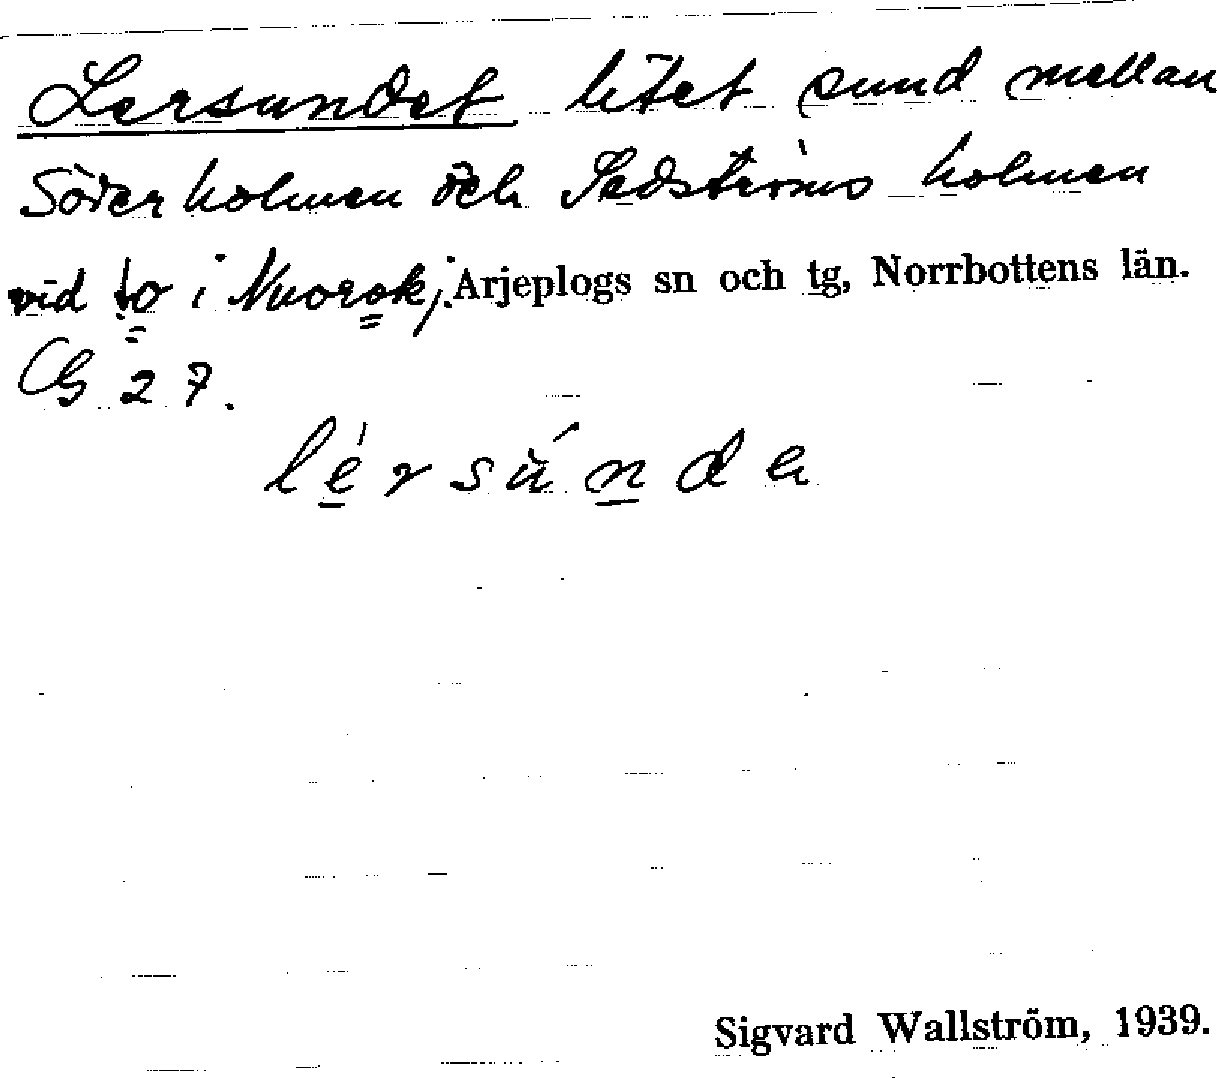 Lersundet litet sund mellan
Söderholmen och Sadströms holmen
vid to i Nuorokj. Arjeplogs sn och tg, Norrbottens län.
CG 27.
lérsúnda
Sigvard Wallström, 1939.